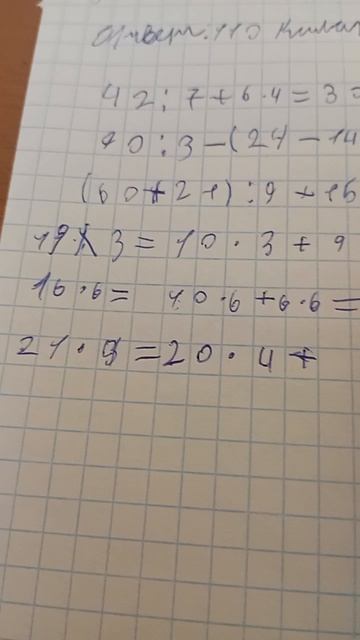 Ответ: 110 килог
42 : 7 + 6 · 4 = 3
90 : 3 - (24 - 14
(60 + 21) : 9 + 16
19 · 3 = 10 · 3 + 9
16 · 6 = 10 · 6 + 6 · 6 =
21 · 9 = 20 · 4 +